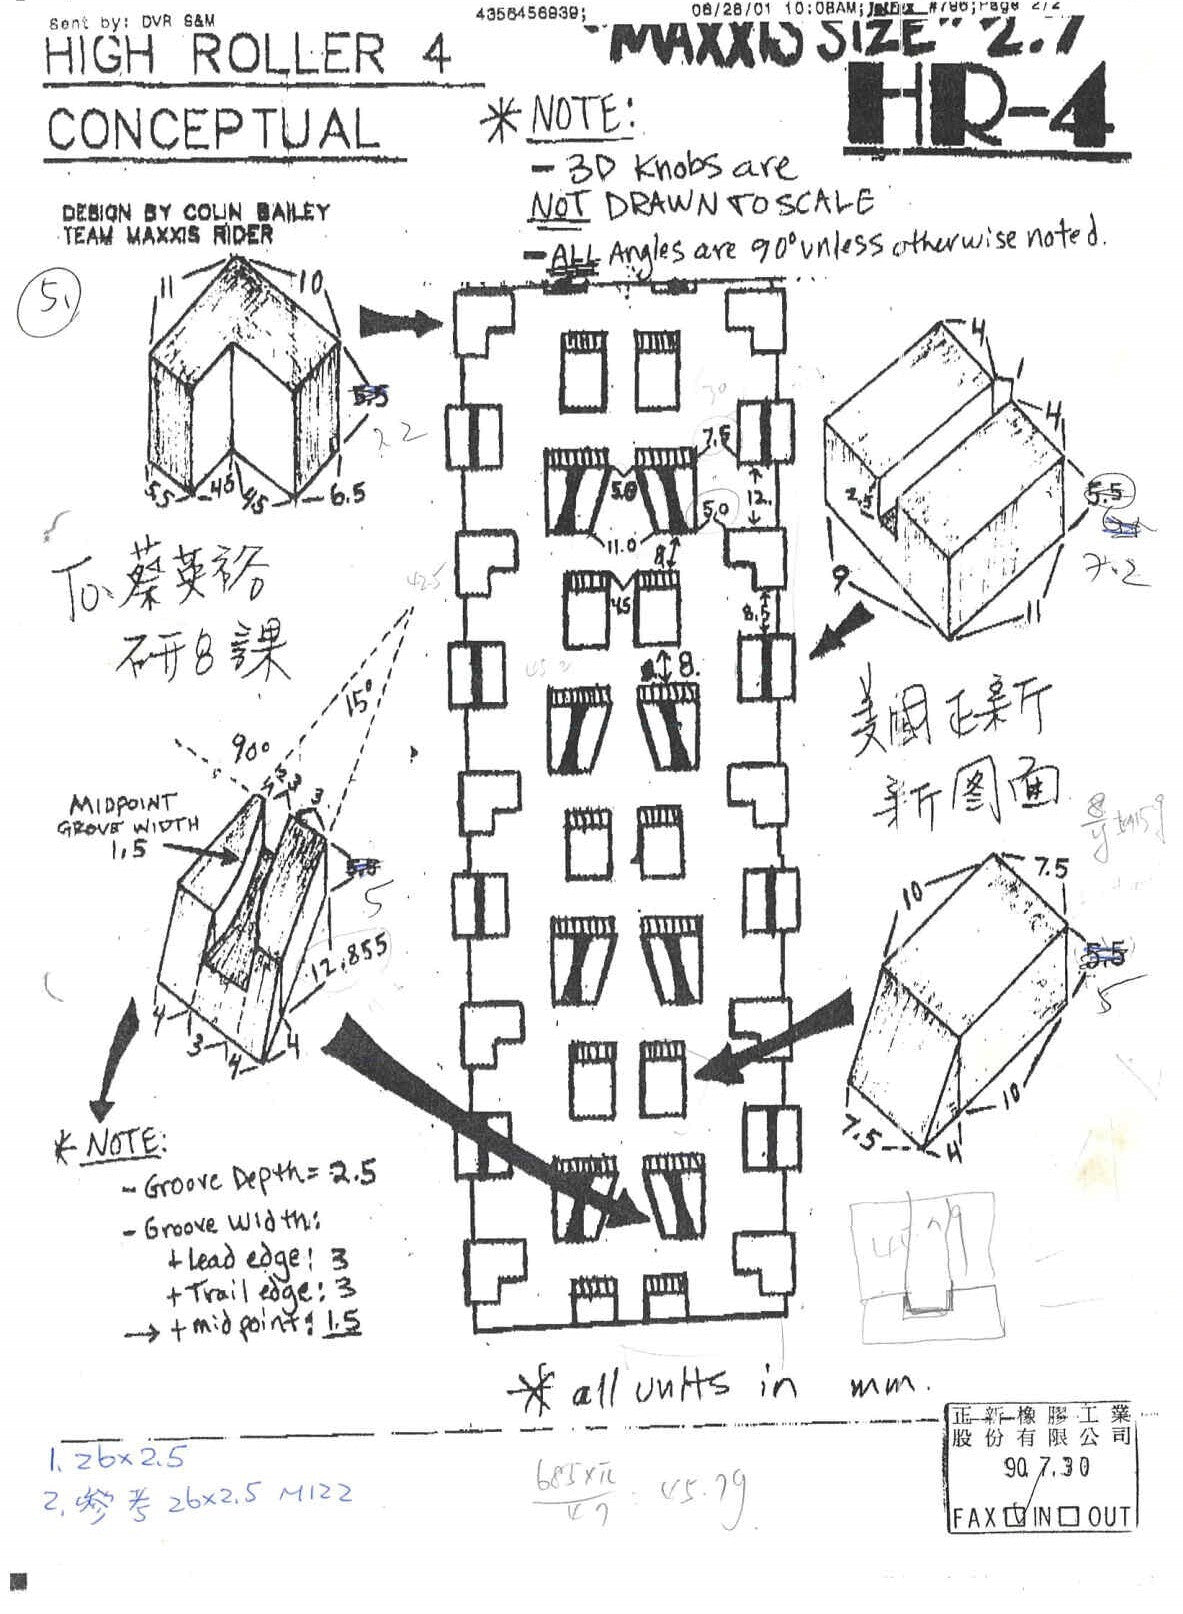 Sent by: DVR S&M
4356456939;
10:08AM;
Page 2/2
HIGH ROLLER 4
CONCEPTUAL
"MAXXIS SIZE" 2.7
HR-4
DESIGN BY COLIN BAILEY
TEAM MAXXIS RIDER
* NOTE:
- 3D Knobs are
NOT DRAWN TO SCALE
- ALL Angles are 90° unless otherwise noted.
5.
11
10
5.5
5.5
4.5
4.5
6.5
4
1
4
2.5
5.5
7.2
9
11
7.5
5.0
5.0
12.
11.0
8
4.5
8.5
8.
425
To. 蔡英裕
研8課
美國正新
新图面
15°
90°
MIDPOINT
GROVE WIDTH
1.5
3
3
5.5
5
12.855
4
3
4
4
10
7.5
5.5
5
10
7.5
4
* NOTE:
- Groove Depth = 2.5
- Groove Width:
+ Lead edge: 3
+ Trail edge: 3
→ + midpoint: 1.5
* all units in mm.
1. 26x2.5
2. 參考 26x2.5 M122
685×π
47
45.79
正新橡膠工業
股份有限公司
90.7.30
FAX ☑ IN ☐ OUT